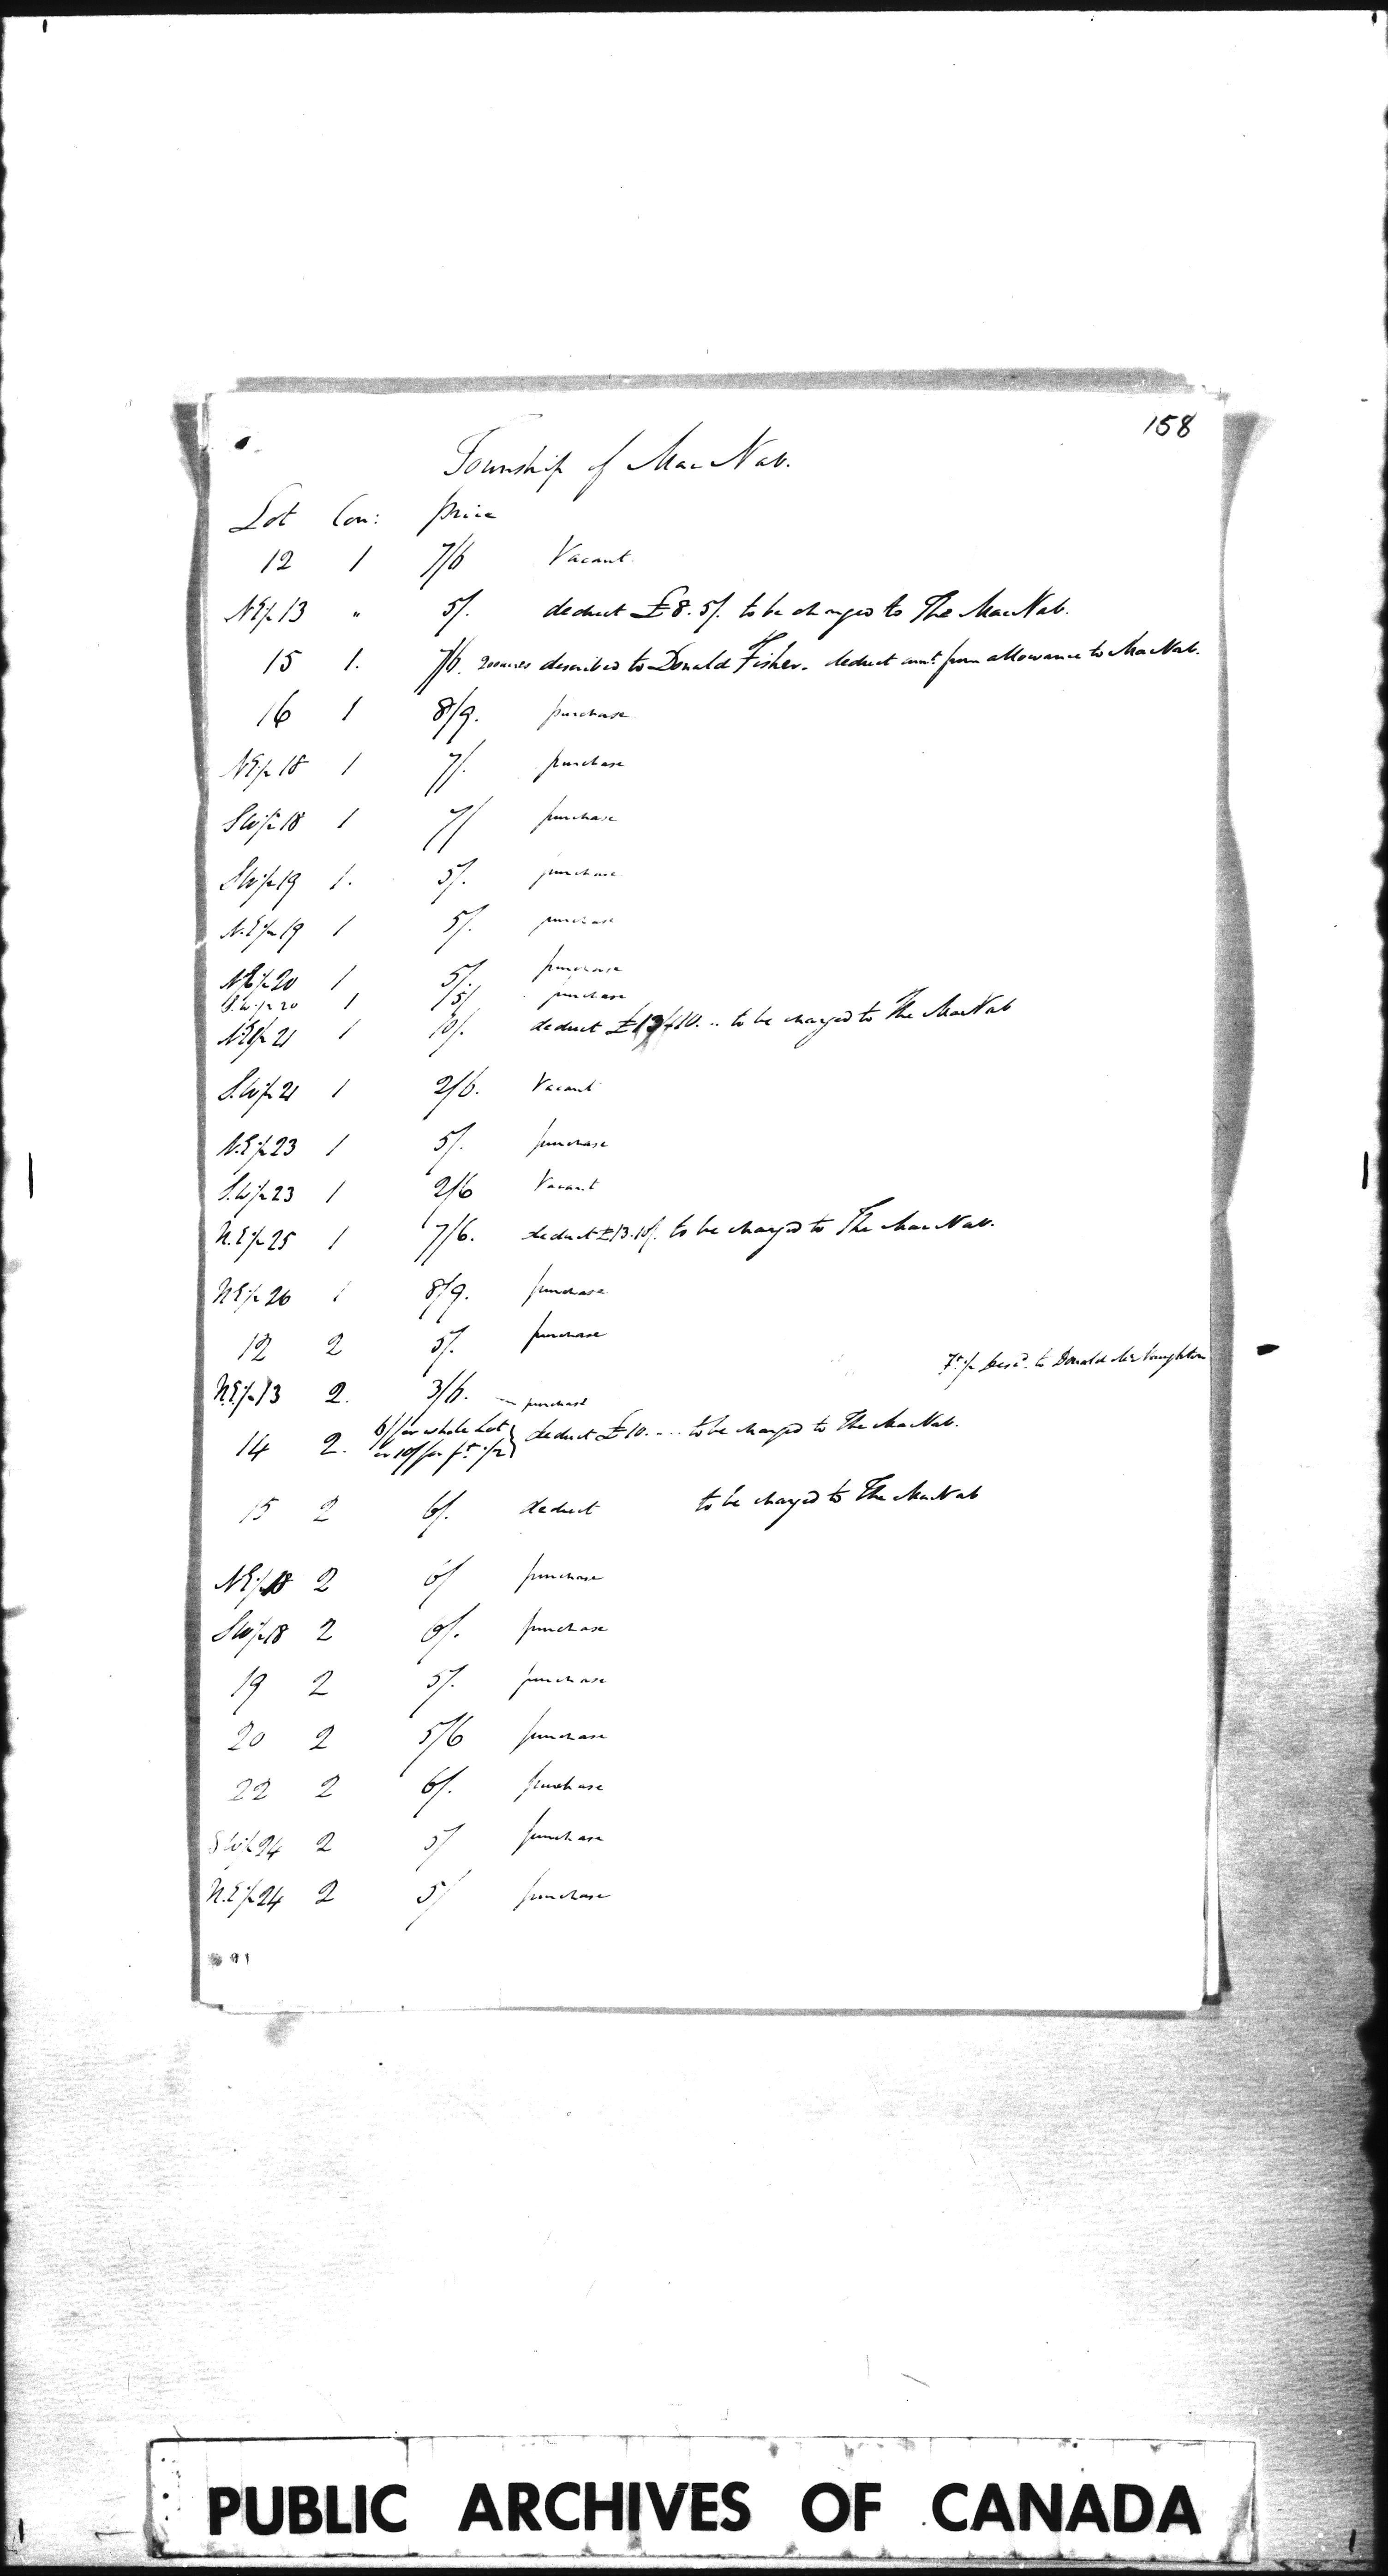 158
Township of MacNab.
Lot Con: price
12 1 7/6 Vacant.
N E ½ 13 " 5/. deduct £8.5/. to be charged to The MacNab.
15 1. 7/6. 200 acres described to Donald Fisher. deduct amt. from allowance to MacNab.
16 1 8/9. purchase
N E ½ 18 1 7/. purchase
S W ½ 18 1 7/ purchase
S W ½ 19 1. 5/. purchase
N. E ½ 19 1 5/. purchase
N E ½ 20 1 5/. purchase
S. W. ½ 20 1 5/ purchase
N E ½ 21 1 10/. deduct 10. .. to be charged to The MacNab
S. W ½ 21 1 2/6. Vacant
N. E ½ 23 1 5/. purchase
S. W ½ 23 1 2/6 Vacant
N. E ½ 25 1 7/6. deduct £13.10/. to be charged to The MacNab.
N E ½ 26 1 8/9. purchase
12 2 5/. purchase
Ft. ½ Desd. to Donald McNaughton
N. E ½ 13 2. 3/6. — purchase
14 2. 6/ for whole Lot or 10/ for ft. ½ } deduct £10. .. .. to be charged to The MacNab.
15 2 6/. deduct to be charged to The MacNab
N E ½ 18 2 6/ purchase
S W ½ 18 2 6/. purchase
19 2 5/. purchase
20 2 5/6 purchase
22 2 6/. purchase
S W ½ 24 2 5/ purchase
N. E ½ 24 2 5/ purchase
PUBLIC ARCHIVES OF CANADA